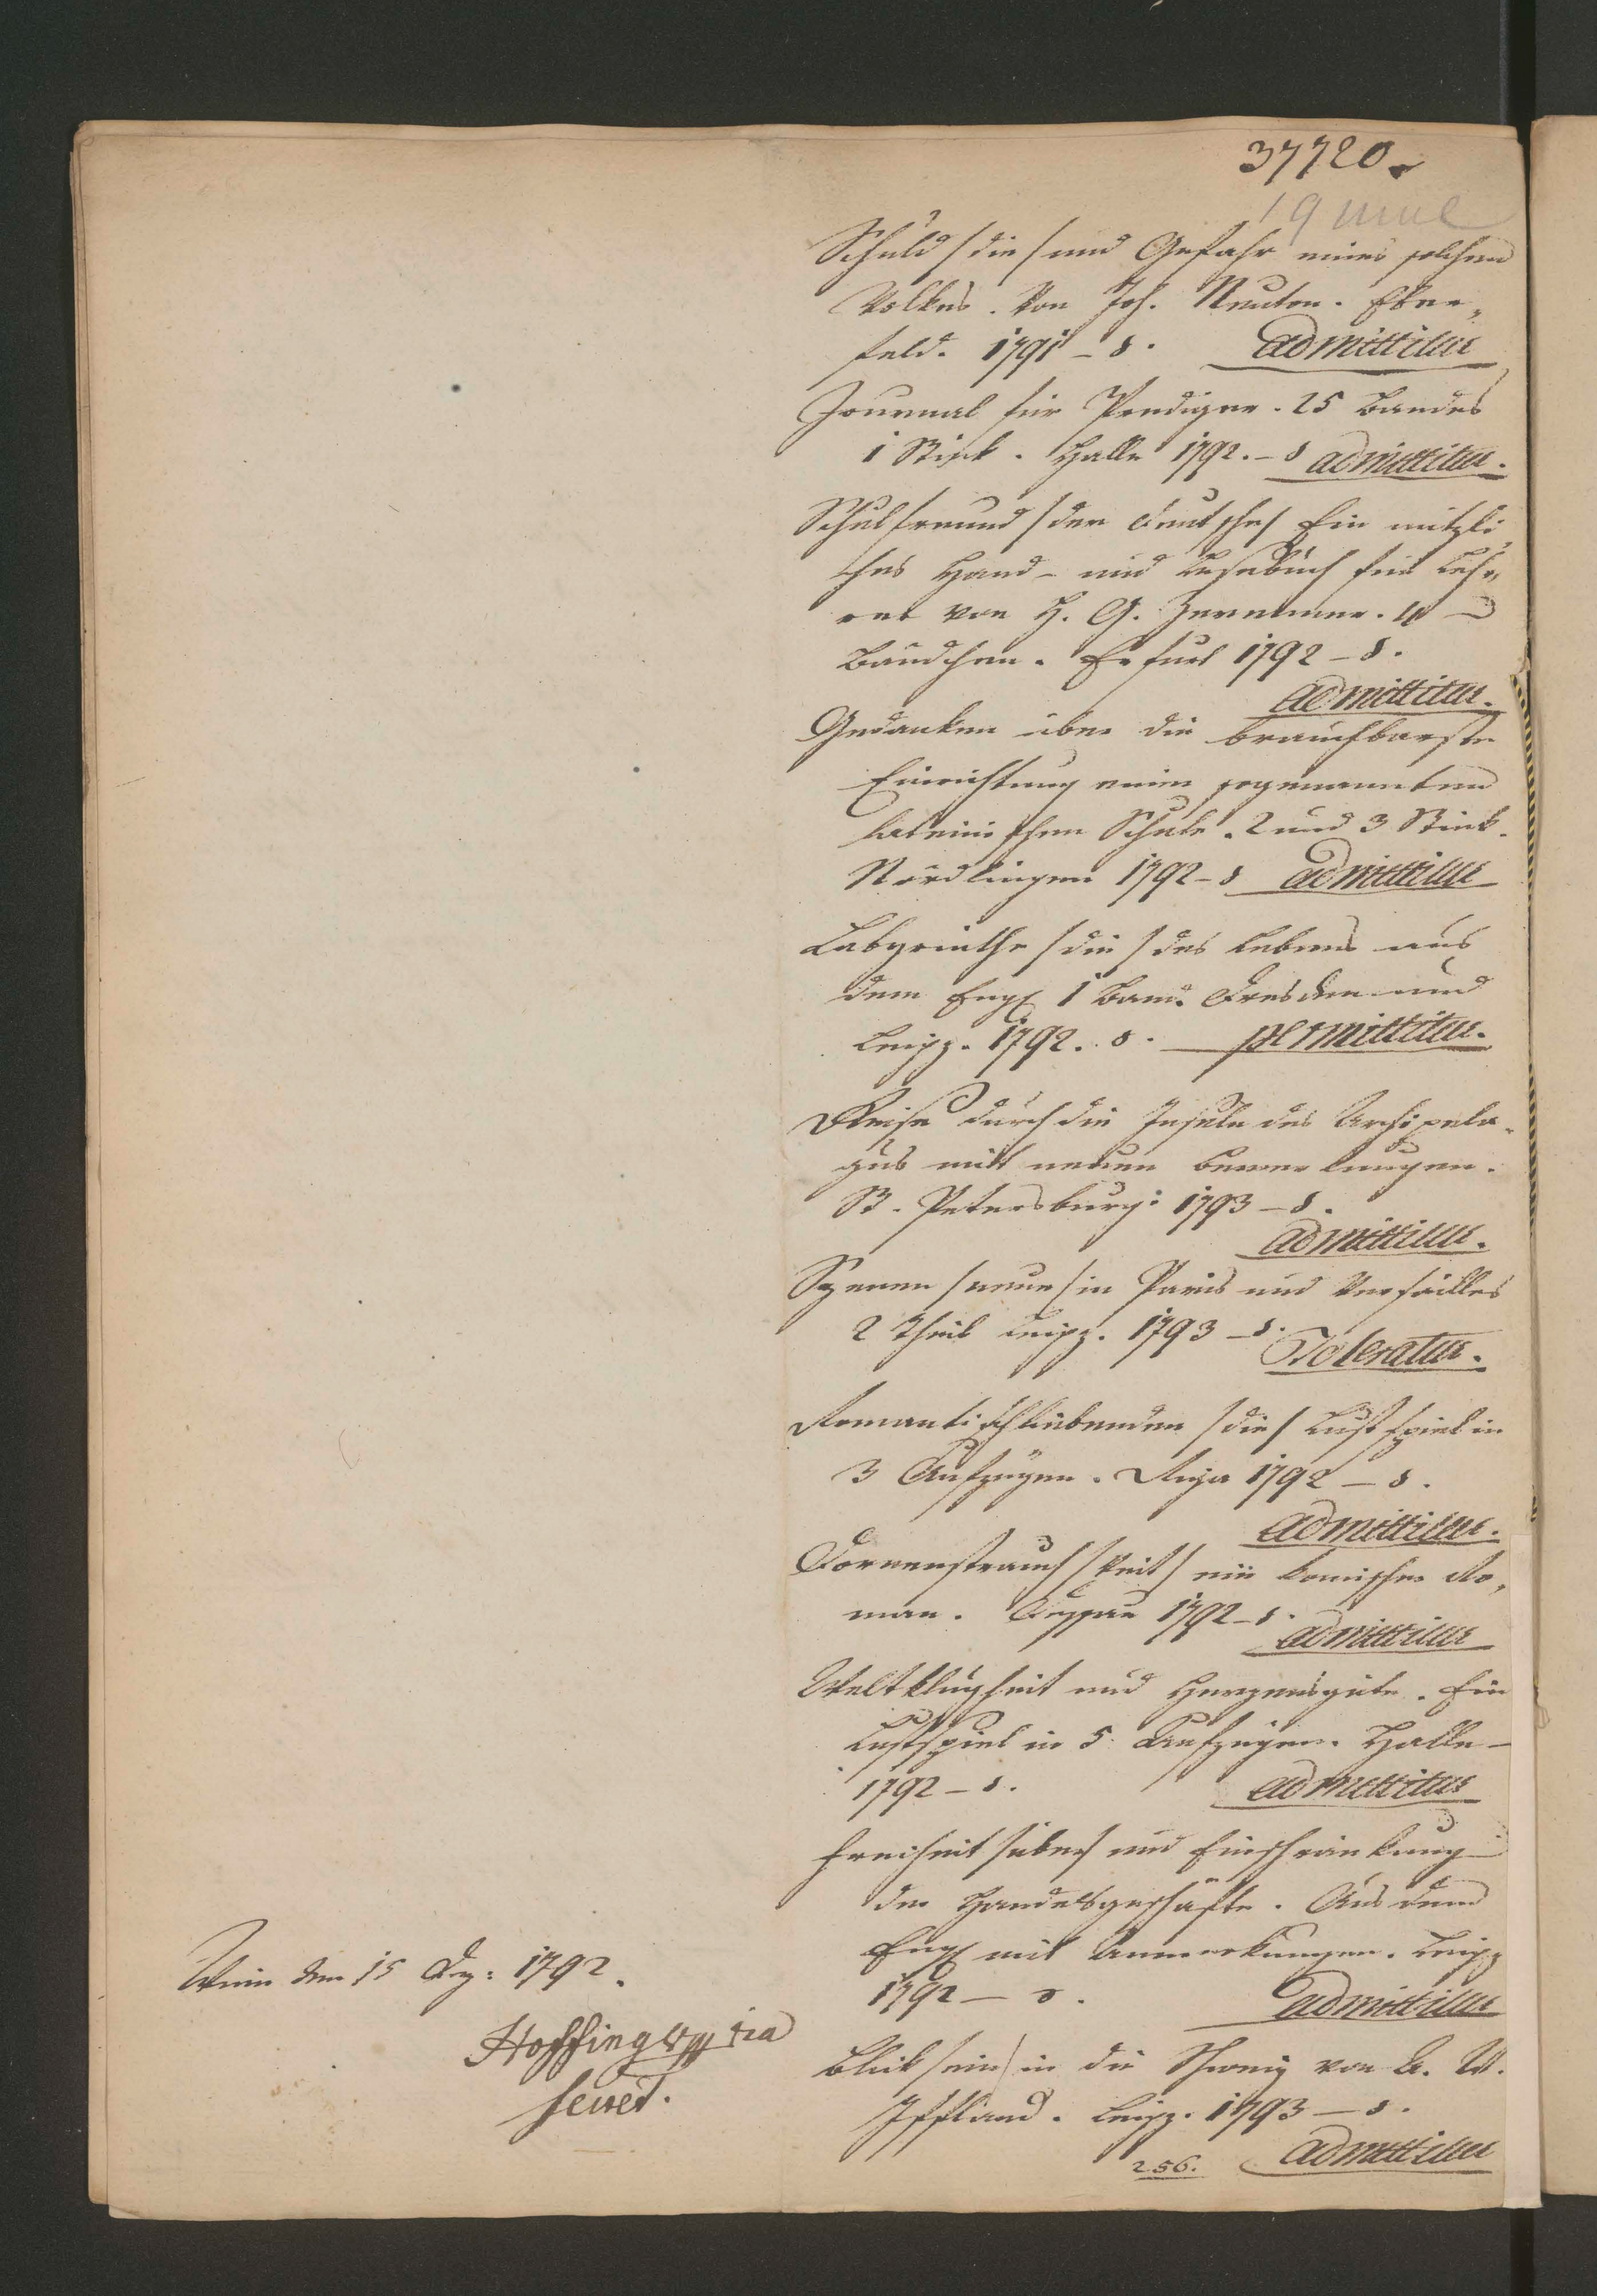 37720.
Schuld /die/ und Gefahr eines solchen
Volkes. Von Joh. Neuton. Elber„
feld. 1791 – 8. admittitur
Journal für Prediger. 25 Bandes
1 Stück. Halle 1792. – 8 admittitur.
Schulfreund /der deutsche/ Ein nützli„
ches Hand- und Lesebuch für Leh„
rer von H. G. Zerrenner. 4
Bändchen. Erfurt 1792 – 8.
admittitur.
Gedanken über die brauchbarste
Einrichtung einer sogenannten
lateinischen Schule. 2 und 3 Stück.
Nördlingen 1792 – 8 admittitur
Labyrinthe /die/ des Lebens aus
dem Engl 1 Band. Dresden und
Leipz. 1792. 8. permittitur.
Reise durch die Inseln des Archipela„
gus mit neuen Bemerkungen.
St. Petersburg: 1793 – 8.
admittitur.
Szenen /neue/ in Paris und Versailles
2 Theil Leipz. 1793 – 8.
Toleratur.
Romantischliebenden /die/ Lustspiel in
3 Aufzügen. Riga 1792 – 8.
admittitur.
Dornenstrauch /Veit/ ein komischer Ro„
man. 1792 – 8.
admittitur
Weltklugheit und Herzensgüte. Ein
Lustspiel in 5 Aufzügen. Halle –
1792 – 8. admittitur
Freiheit /über/ und Einschränkung
der Handelsgeschäfte. Aus dem
Engl mit Anmerkungen. Leipz
1792 – 8. admittitur
Blick /ein/ in die Schweiz von A. W.
Iffland. Leipz. 1793 – 8.
256. admittitur
Wien den 15 Dez: 1792.